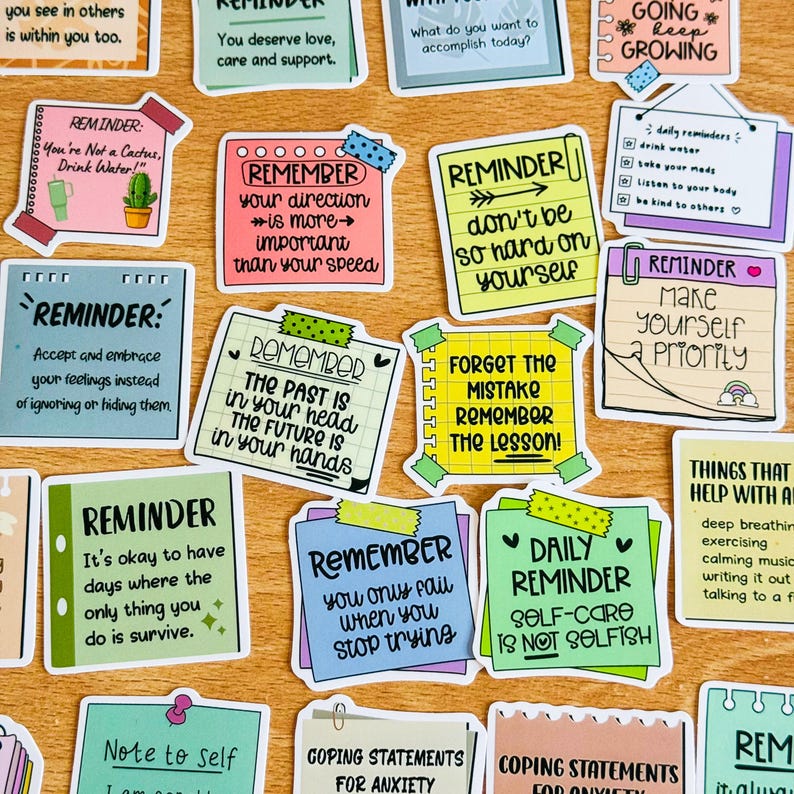 you see in others
is within you too.
REMINDER
You deserve love,
care and support.
What do you want to
accomplish today?
GOING
keep
GROWING
REMINDER:
You're Not a Cactus,
Drink Water!"
REMEMBER
your direction
is more
important
than your speed
REMINDER
don't be
so hard on
yourself
daily reminders
drink water
take your meds
listen to your body
be kind to others
REMINDER
Make
yourself
a priority
REMINDER:
Accept and embrace
your feelings instead
of ignoring or hiding them.
REMEMBER
THE PAST IS
in your head
THE FUTURE IS
in your hands
FORGET THE
MISTAKE
REMEMBER
THE LESSON!
THINGS THAT
HELP WITH
deep breathin
exercising
calming music
writing it out
talking to a f
REMINDER
It's okay to have
days where the
only thing you
do is survive.
Remember
you only fail
when you
stop trying
DAILY
REMINDER
SELF-CARE
IS NOT SELFISH
Note to self
COPING STATEMENTS
FOR ANXIETY
COPING STATEMENTS
FOR ANXIETY
REM